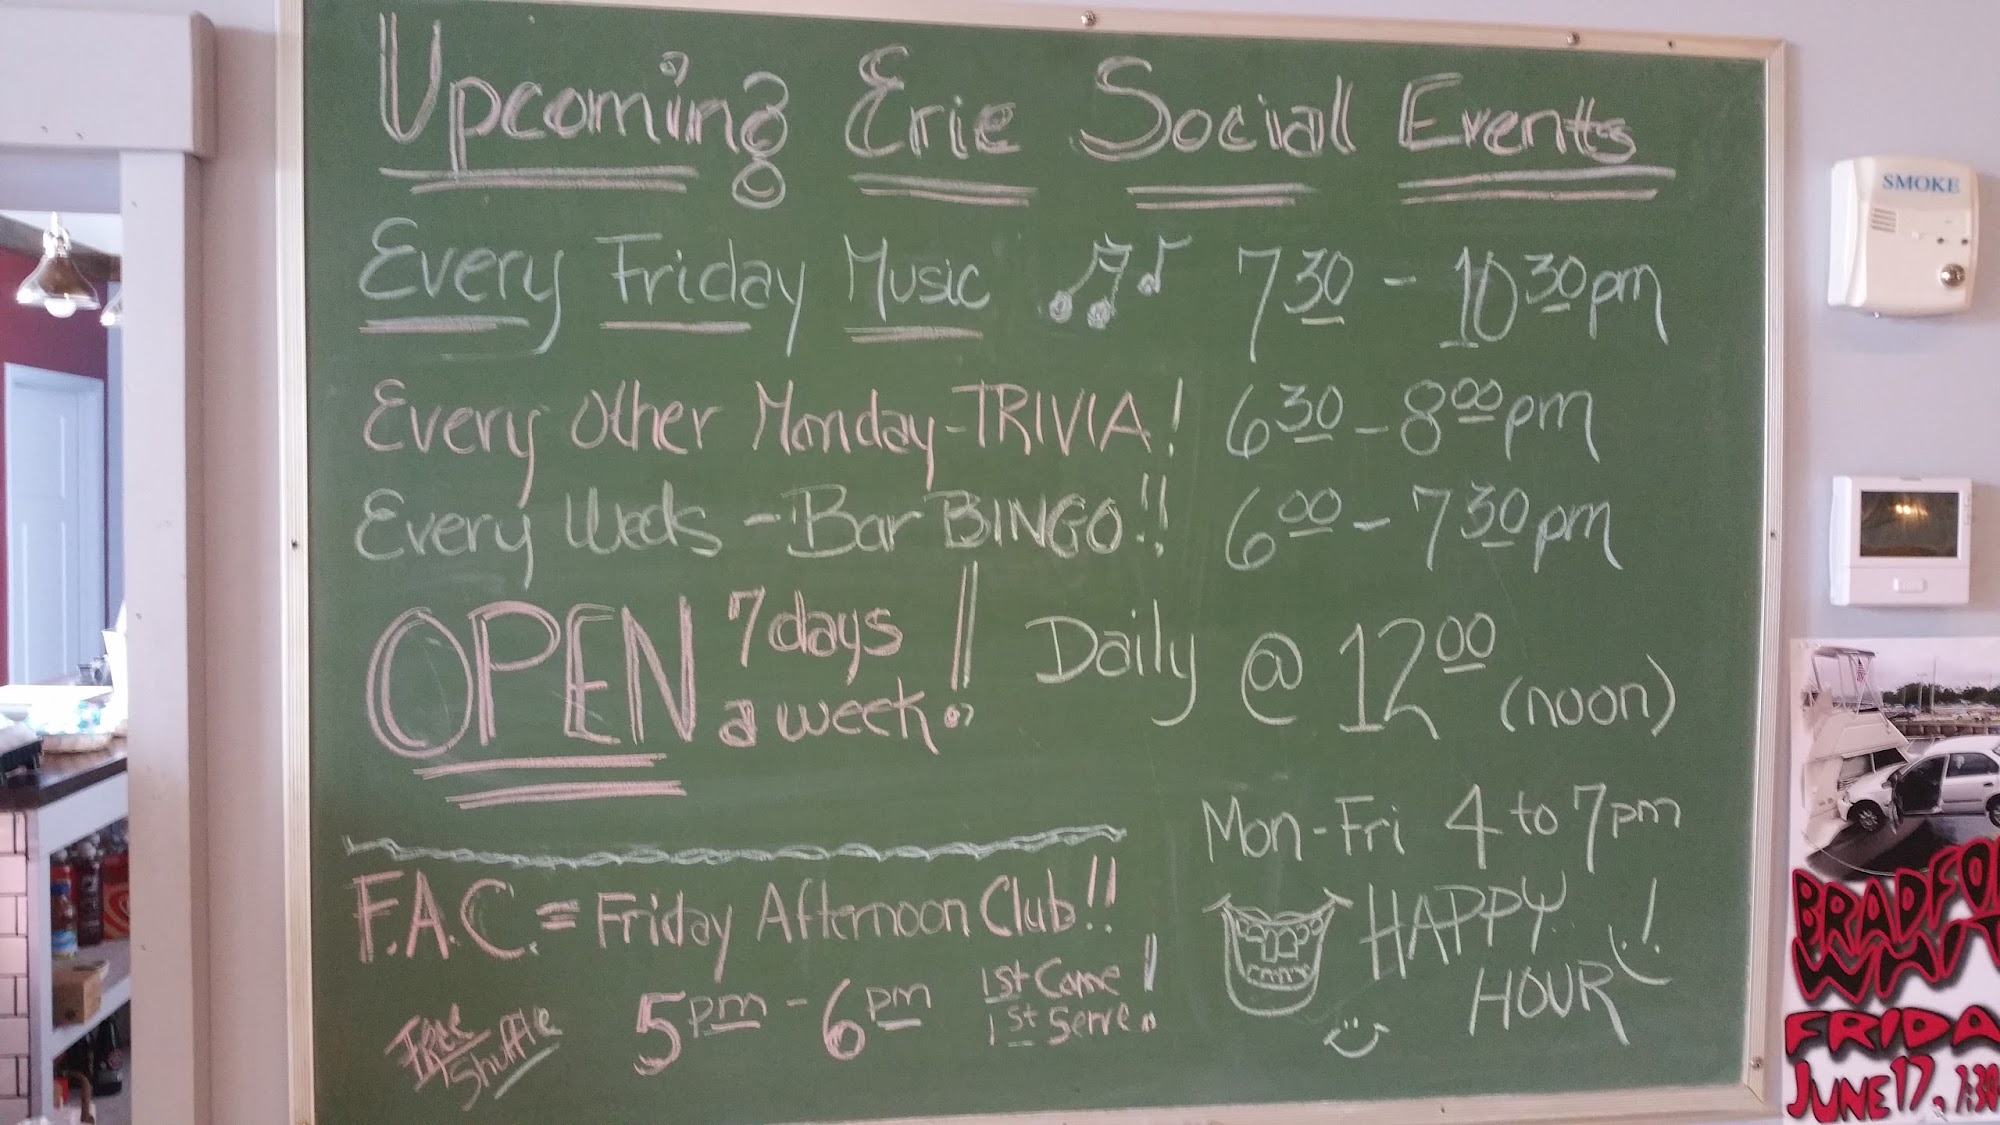 Upcoming Erie Social Events
Every Friday Music 7 30 - 10 30 pm
Every Other Monday - TRIVIA! 6 30 - 8 00 pm
Every Weds - Bar BINGO!! 6 00 - 7 30 pm
OPEN 7 days a week!! Daily @ 12 00 (noon)
Mon-Fri 4 to 7pm
HAPPY
HOUR!
F.A.C. = Friday Afternoon Club!!
Free
Shuffle
5pm - 6pm
1st Come
1st Serve!
SMOKE
FRIDA
JUNE 17, 7:30